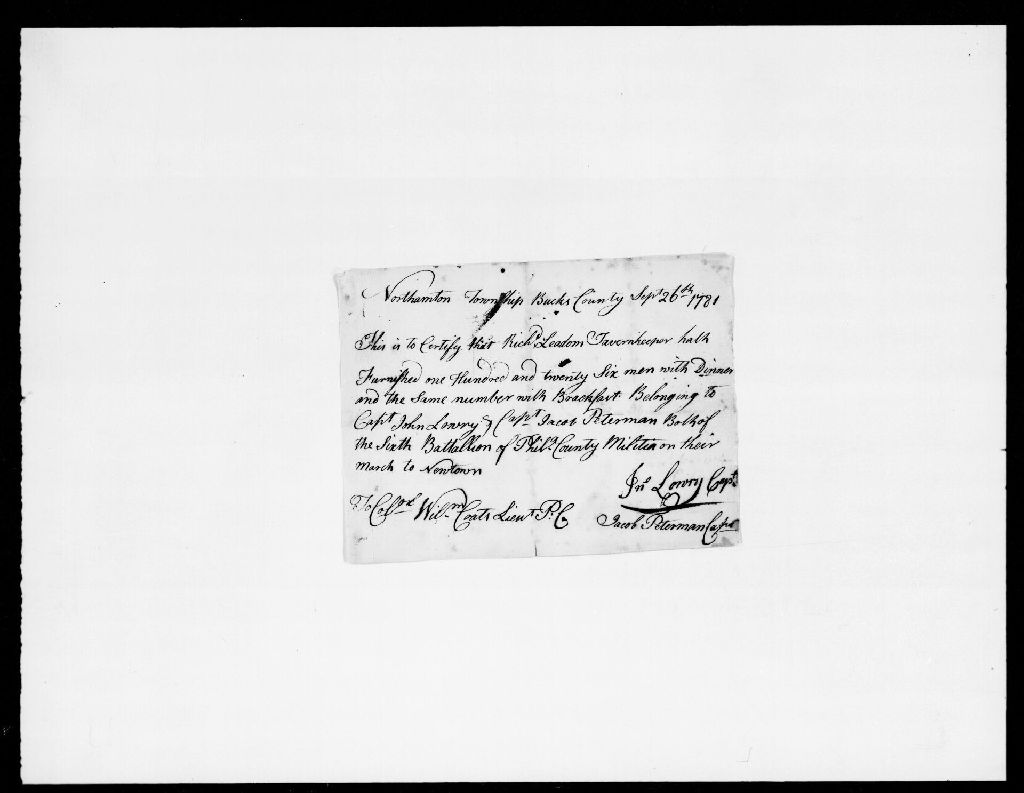 Northamton Township Bucks County Sept 26th 1781
This is to Certify that Richd Leadom Tavernkeeper hath
Furnished one Hundred and twenty Six men with Dinner
and the Same number with Brackfast Belonging to
Capt John Lowry & Capt Jacob Peterman Both of
the Sixth Battallion of Phila County Militia on their
March to Newtown
Jno Lowry Capt
To Colonl Willm Coats Lieut P. C.
Jacob Peterman Capt